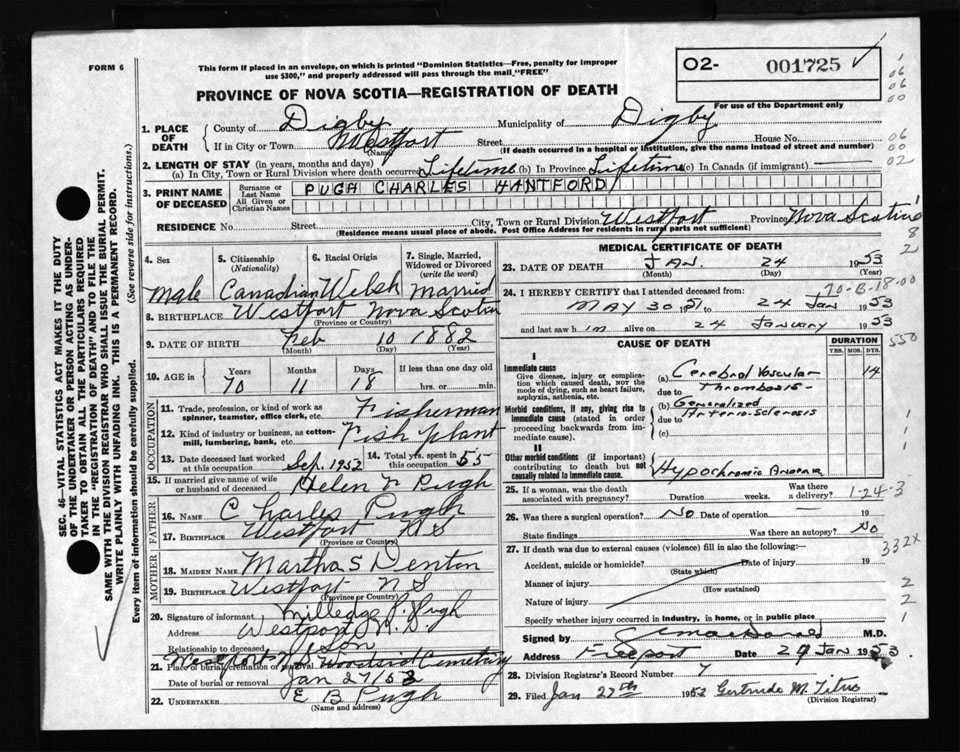 FORM 6
This form if placed in an envelope, on which is printed "Dominion Statistics—Free, penalty for improper
use $300," and properly addressed will pass through the mail, "FREE"
O2- 001725
For use of the Department only
PROVINCE OF NOVA SCOTIA—REGISTRATION OF DEATH
1. PLACE OF DEATH
County of Digby Municipality of Digby
If in City or Town Westport Street House No.
(Name) (If death occurred in a hospital or institution, give the name instead of street and number)
2. LENGTH OF STAY (in years, months and days)
(a) In City, Town or Rural Division where death occurred Lifetime (b) In Province Lifetime (c) In Canada (if immigrant)
3. PRINT NAME OF DECEASED
Surname or Last Name PUGH CHARLES HANTFORD
All Given or Christian Names
RESIDENCE No. Street City, Town or Rural Division Westport Province Nova Scotia
(Residence means usual place of abode. Post Office Address for residents in rural parts not sufficient)
4. Sex
Male
5. Citizenship (Nationality)
Canadian
6. Racial Origin
Welsh
7. Single, Married, Widowed or Divorced (write the word)
Married
8. BIRTHPLACE Westport Nova Scotia
(Province or Country)
9. DATE OF BIRTH Feb 10 1882
(Month) (Day) (Year)
10. AGE in Years Months Days If less than one day old
70 11 18 hrs. or min.
OCCUPATION
11. Trade, profession, or kind of work as spinner, teamster, office clerk, etc. Fisherman
12. Kind of industry or business, as cotton-mill, lumbering, bank, etc. Fish plant
13. Date deceased last worked at this occupation Sep. 1952
14. Total yrs. spent in this occupation 55
15. If married give name of wife or husband of deceased Helen F Pugh
FATHER
16. NAME Charles Pugh
17. BIRTHPLACE Westport N S
(Province or Country)
MOTHER
18. MAIDEN NAME Martha S Denton
19. BIRTHPLACE Westport N S
(Province or Country)
20. Signature of informant Milledge P. Pugh
Address Westport N.S.
Relationship to deceased Son
21. Place of burial, cremation or removal Westport N.S. Woodside Cemetery
Date of burial or removal Jan 27/53
22. UNDERTAKER E B Pugh
(Name and address)
MEDICAL CERTIFICATE OF DEATH
23. DATE OF DEATH JAN. 24 1953
(Month) (Day) (Year)
70-B-18-00
24. I HEREBY CERTIFY that I attended deceased from:
MAY 30 51, to 24 Jan 1953
and last saw him alive on 24 January 1953
CAUSE OF DEATH
DURATION
YRS. MOS. DYS.
I
Immediate cause
Give disease, injury or complication which caused death, not the mode of dying, such as heart failure, asphyxia, asthenia, etc.
(a) Cerebral Vascular Thrombosis 14
due to
Morbid conditions, if any, giving rise to immediate cause (stated in order proceeding backwards from immediate cause).
(b) Generalized Arterio-Sclerosis
due to
(c)
II
Other morbid conditions (if important) contributing to death but not causally related to immediate cause.
Hypochromic Anaemia
25. If a woman, was the death associated with pregnancy? Duration weeks. Was there a delivery?
1-24-3
26. Was there a surgical operation? No Date of operation 19
State findings Was there an autopsy? No
332X
27. If death was due to external causes (violence) fill in also the following:—
Accident, suicide or homicide? Date of injury 19
(State which)
Manner of injury
(How sustained)
Nature of injury
Specify whether injury occurred in industry, in home, or in public place
Signed by M.D.
Address Freeport Date 24 Jan 1953.
28. Division Registrar's Record Number
29. Filed Jan 27th 1953 Gertrude M. Titus
(Division Registrar)
SEC. 46—VITAL STATISTICS ACT MAKES IT THE DUTY
OF THE UNDERTAKER OR PERSON ACTING AS UNDER-
TAKER TO OBTAIN ALL THE PARTICULARS REQUIRED
IN THE "REGISTRATION OF DEATH" AND TO FILE THE
SAME WITH THE DIVISION REGISTRAR WHO SHALL ISSUE THE BURIAL PERMIT.
WRITE PLAINLY WITH UNFADING INK. THIS IS A PERMANENT RECORD.
Every item of information should be carefully supplied. (See reverse side for instructions.)